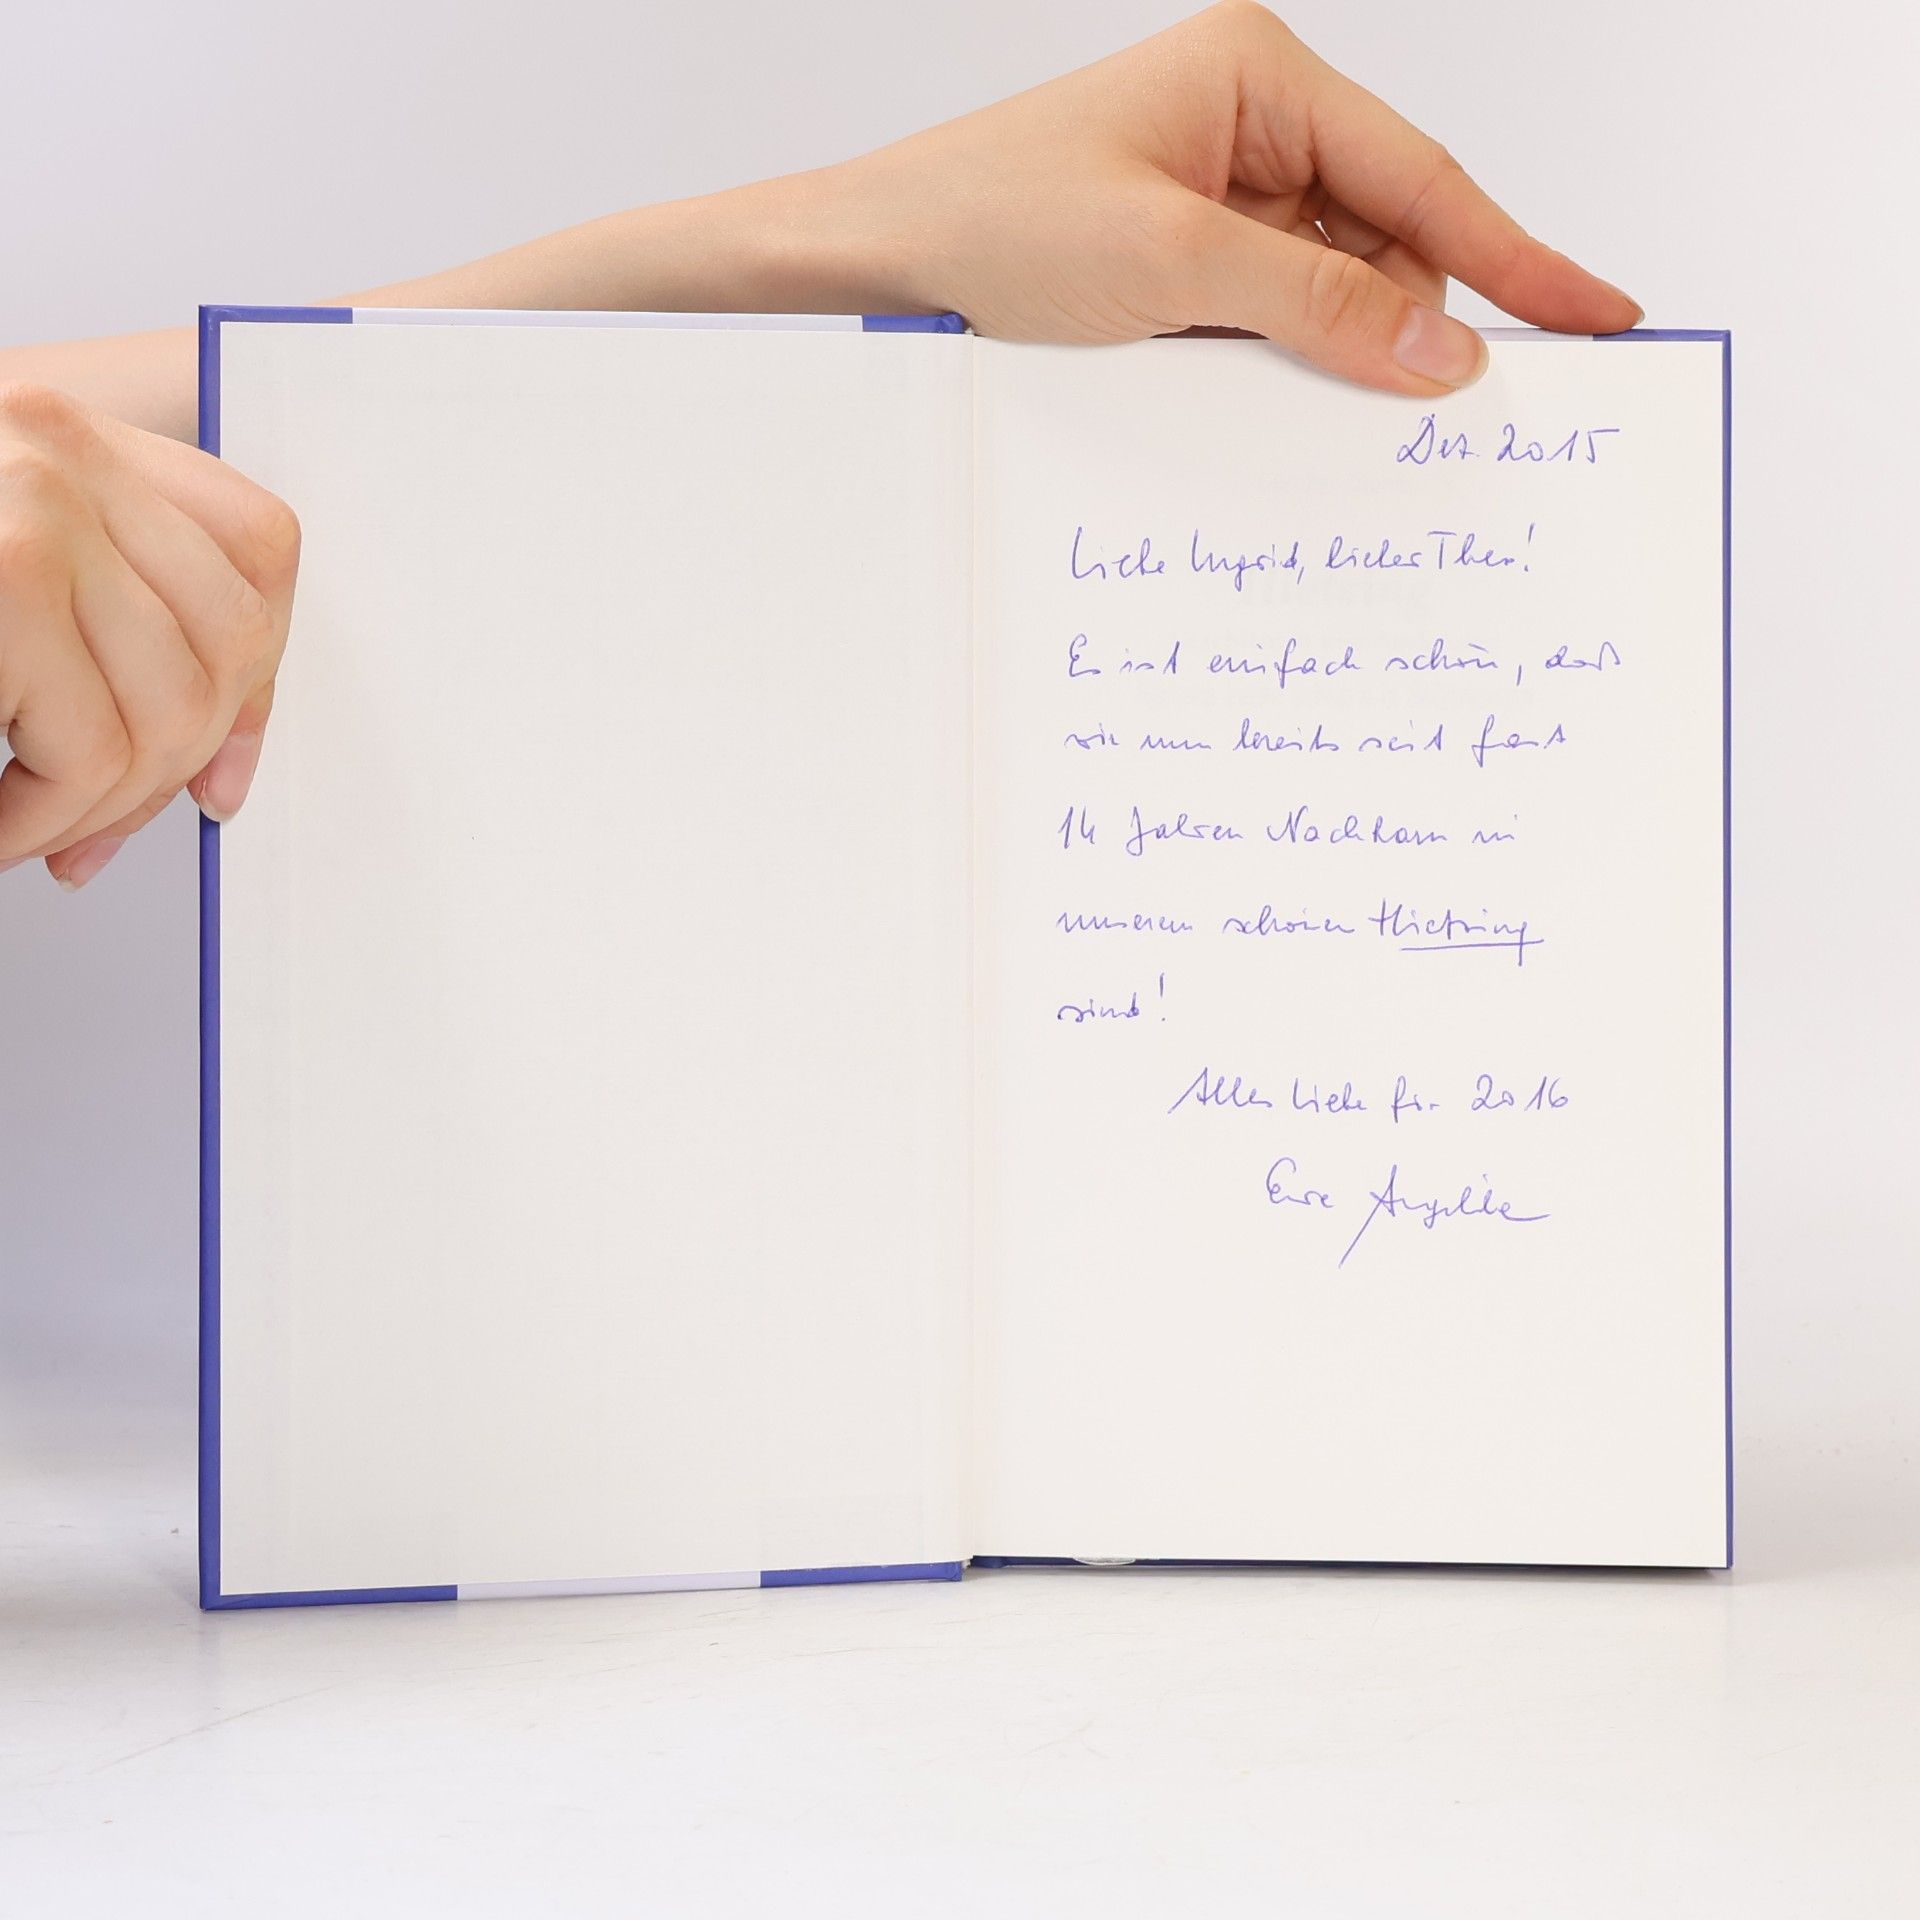 Dez. 2015
Liebe Ingrid, lieber Theo!
Es ist einfach schön, daß
wir nun bereits seit fast
14 Jahren Nachbarn in
unserem schönen Hietzing
sind!
Alles Liebe für 2016
Eure Angelika